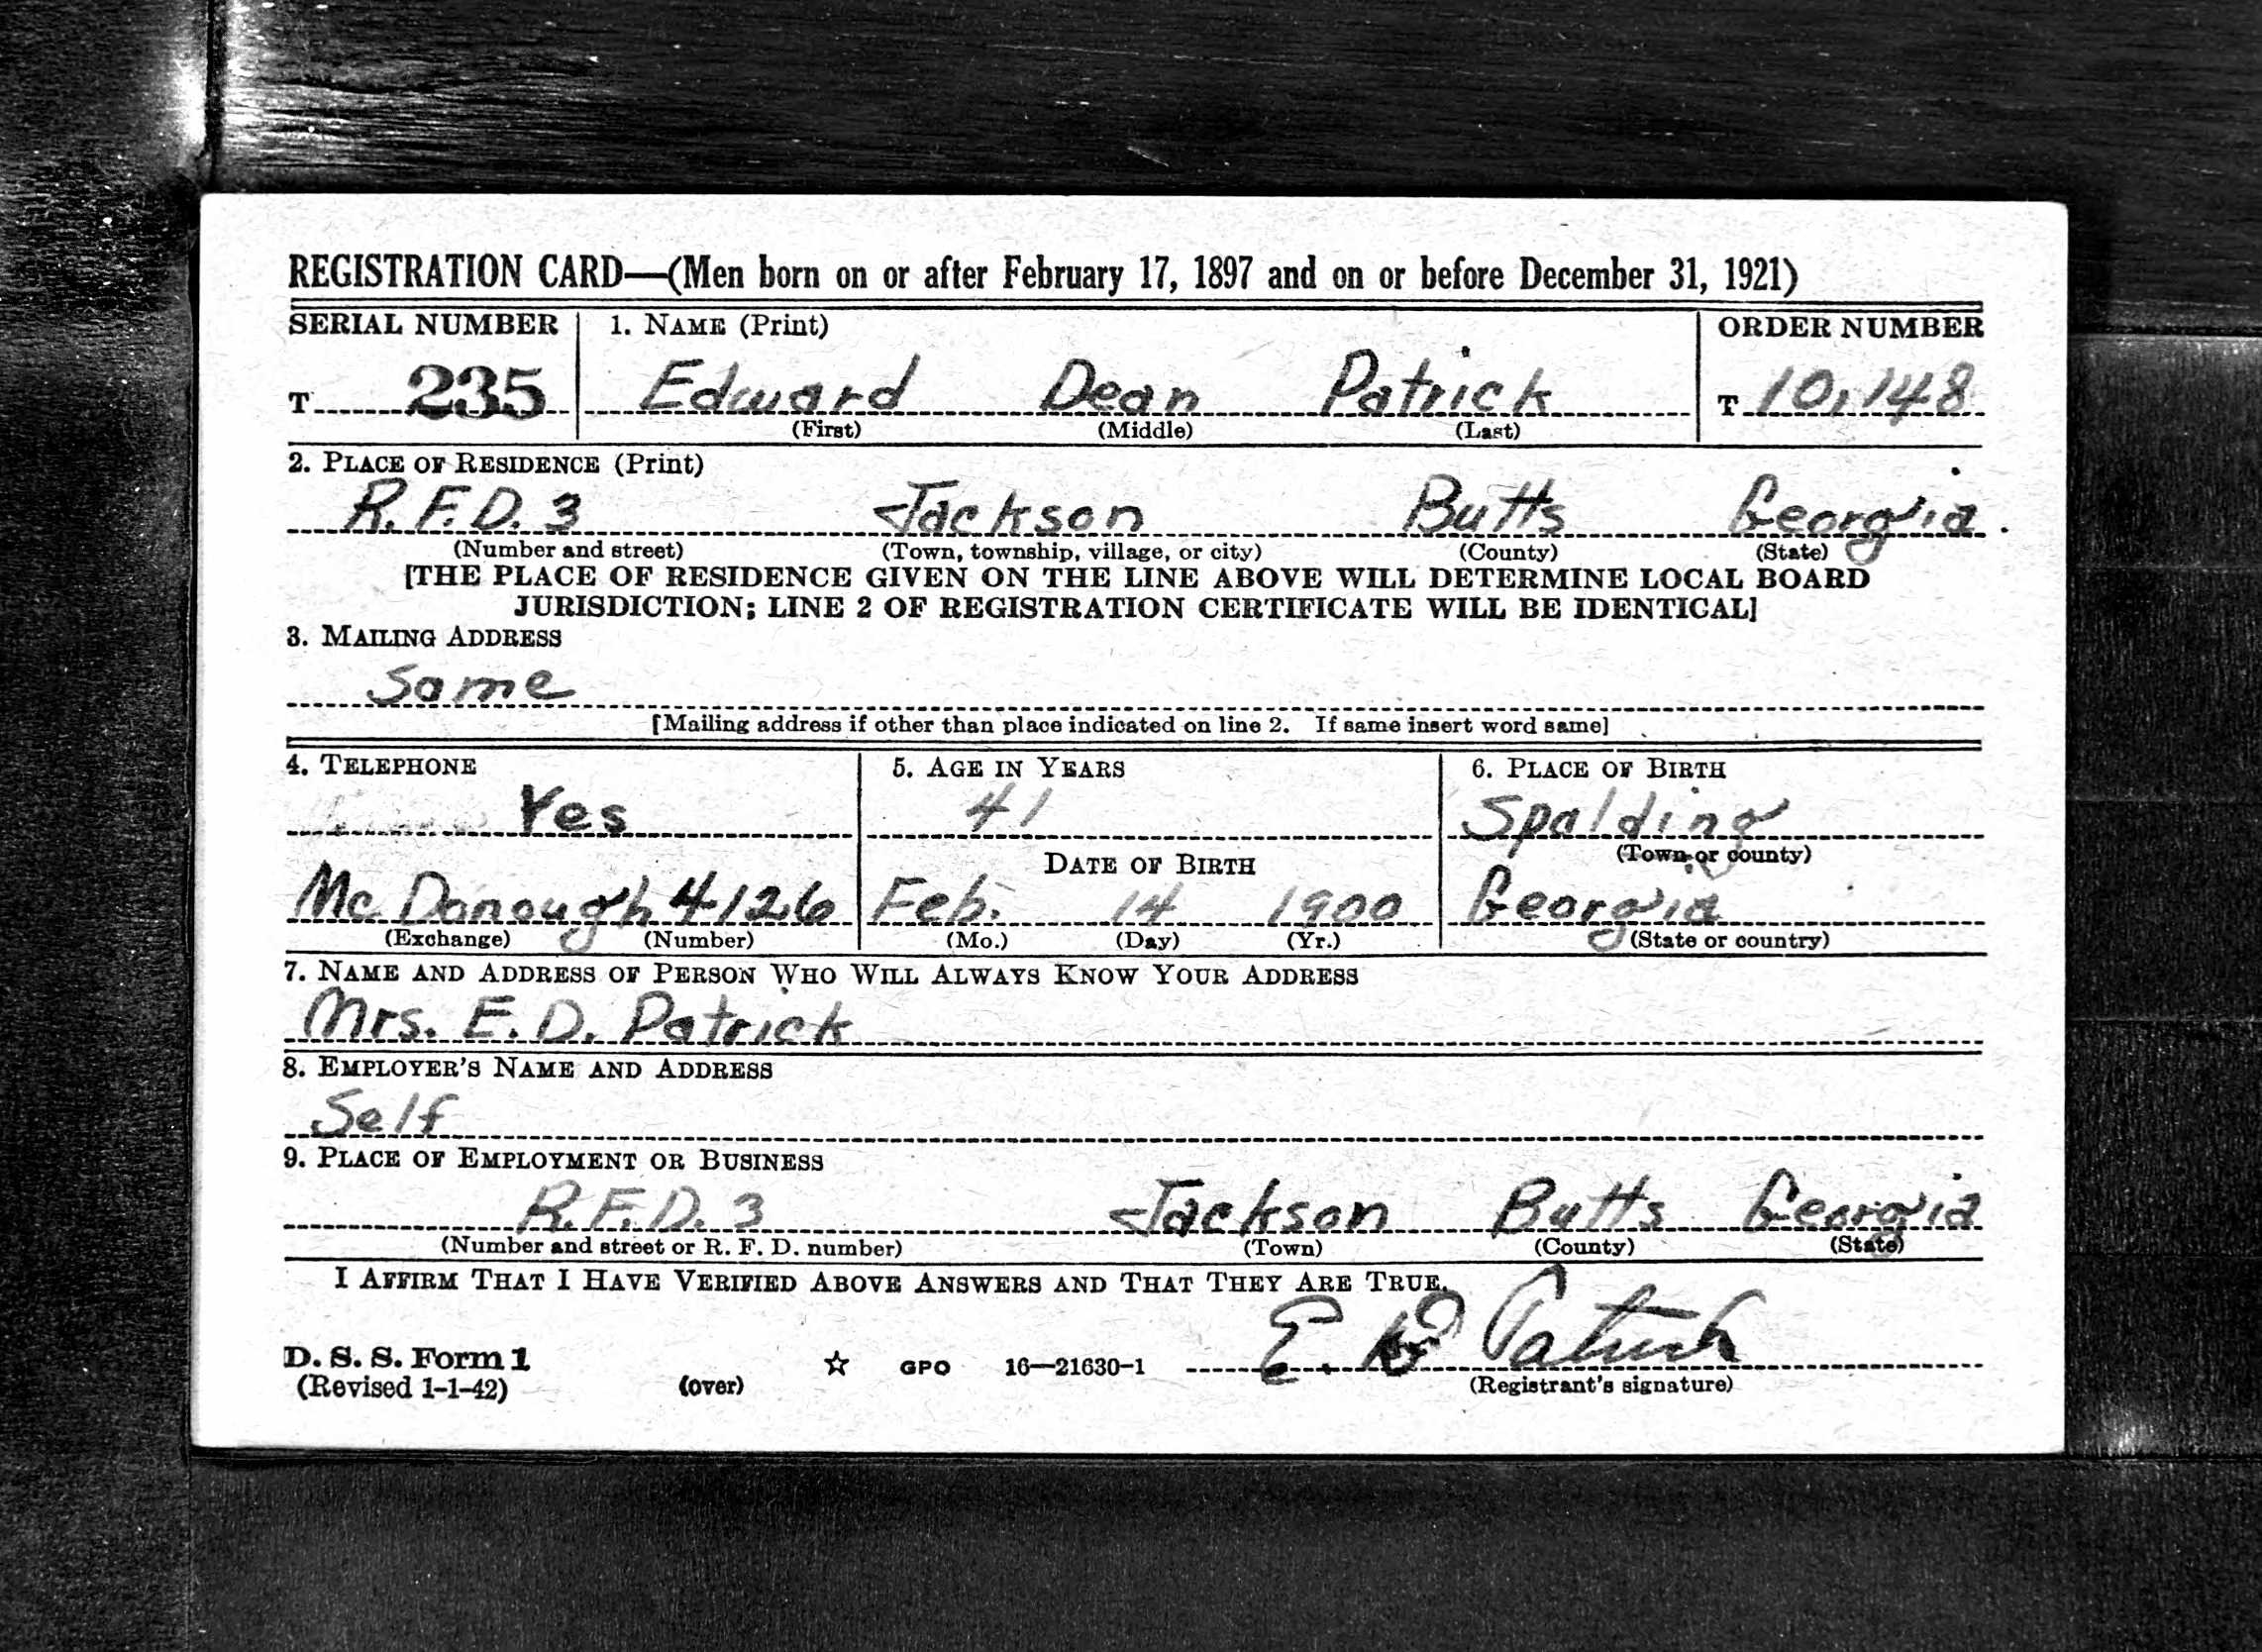 REGISTRATION CARD—(Men born on or after February 17, 1897 and on or before December 31, 1921)
SERIAL NUMBER 1. NAME (Print) ORDER NUMBER
T 235 Edward Dean Patrick T 10,148
(First) (Middle) (Last)
2. PLACE OF RESIDENCE (Print)
R.F.D. 3 Jackson Butts Georgia.
(Number and street) (Town, township, village, or city) (County) (State)
[THE PLACE OF RESIDENCE GIVEN ON THE LINE ABOVE WILL DETERMINE LOCAL BOARD
JURISDICTION; LINE 2 OF REGISTRATION CERTIFICATE WILL BE IDENTICAL]
3. MAILING ADDRESS
Same
[Mailing address if other than place indicated on line 2. If same insert word same]
4. TELEPHONE 5. AGE IN YEARS 6. PLACE OF BIRTH
Yes 41 Spalding
DATE OF BIRTH (Town or county)
Mc Donough 4126 Feb. 14 1900 Georgia
(Exchange) (Number) (Mo.) (Day) (Yr.) (State or country)
7. NAME AND ADDRESS OF PERSON WHO WILL ALWAYS KNOW YOUR ADDRESS
Mrs. E. D. Patrick
8. EMPLOYER'S NAME AND ADDRESS
Self
9. PLACE OF EMPLOYMENT OR BUSINESS
R.F.D. 3 Jackson Butts Georgia
(Number and street or R. F. D. number) (Town) (County) (State)
I AFFIRM THAT I HAVE VERIFIED ABOVE ANSWERS AND THAT THEY ARE TRUE.
E. D Patrick
D. S. S. Form 1 (over) ☆ GPO 16—21630-1
(Revised 1-1-42) (Registrant's signature)